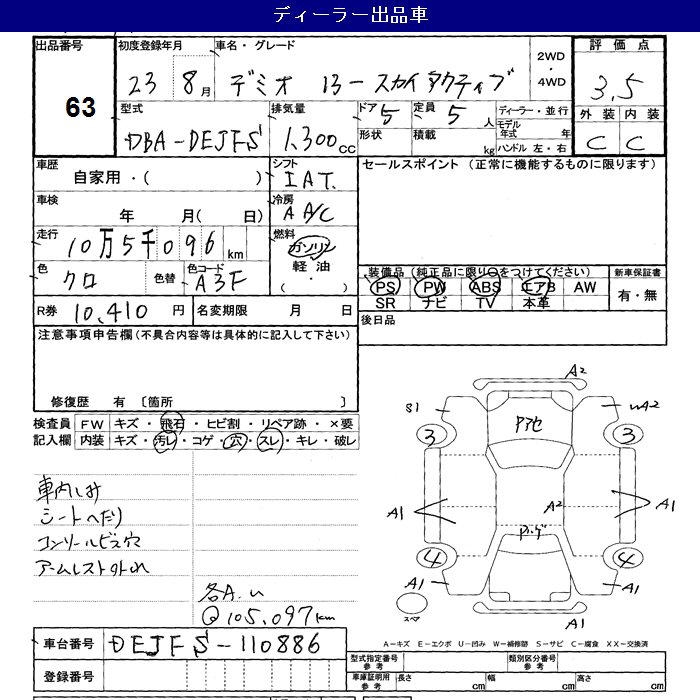 ディーラー出品車
出品番号 63
初度登録年月 23 8月
車名・グレード デミオ 13-スカイアクティブ
2WD・4WD
評価点 3.5
型式 DBA-DEJFS
排気量 1,300cc
ドア 5
形状
定員 5人
積載 kg
ディーラー・並行
モデル年式 年
ハンドル 左・右
外装 C
内装 C
車歴 自家用・( )
シフト IAT.
セールスポイント (正常に機能するものに限ります)
車検 年 月( 日)
冷房 A A/C
走行 10万5千096km
燃料 ガソリン 軽油 ( ・ )
色 クロ
色替
色コード A3F
装備品 (純正品に限り○をつけてください)
新車保証書
PS PW ABS エアB AW
SR ナビ TV 本革
有・無
R券 10,410円
名変期限 月 日
後日品
注意事項申告欄 (不具合内容等は具体的に記入して下さい)
修復歴 有 〔箇所 〕
検査員 FW キズ・飛石・ヒビ割・リペア跡・×要
記入欄 内装 キズ・汚レ・コゲ・穴・スレ・キレ・破レ
車内しみ
シートへたり
コンソールビス穴
アームレスト外れ
各A.u
Q105,097km
A2
S1
アアセ
uA2
3
3
A1
A2
A1
4
4
A1
A1
スペア
A1
A-キズ E-エクボ U-凹み W-補修跡 S-サビ C-腐食 XX-交換済
車台番号 DEJFS-110886
型式指定番号 参考
類別区分番号 参考
登録番号
車庫証明用 参考 長さ cm 幅 cm 高さ cm